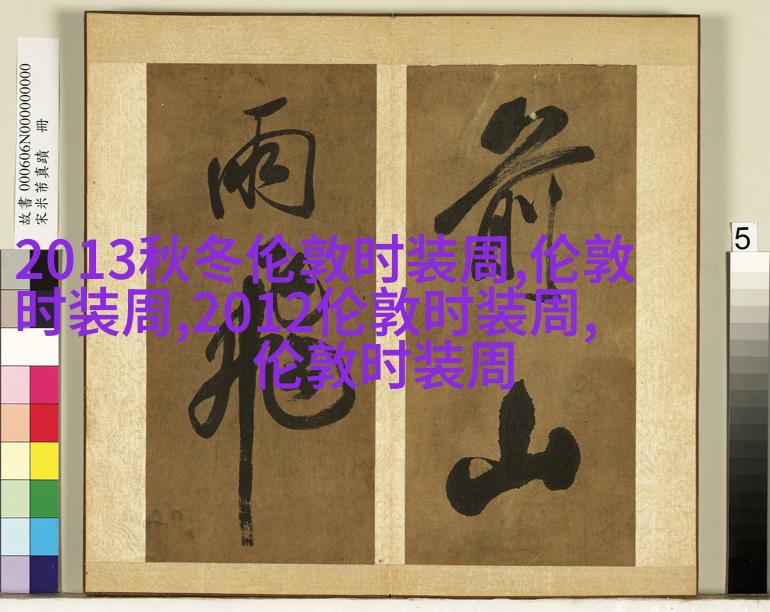 2013秋冬伦敦时装周,伦敦
时装周,2012伦敦时装周,
伦敦时装周
前山
雨飛
故書 000606N000000000
宋米芾真蹟 冊
5